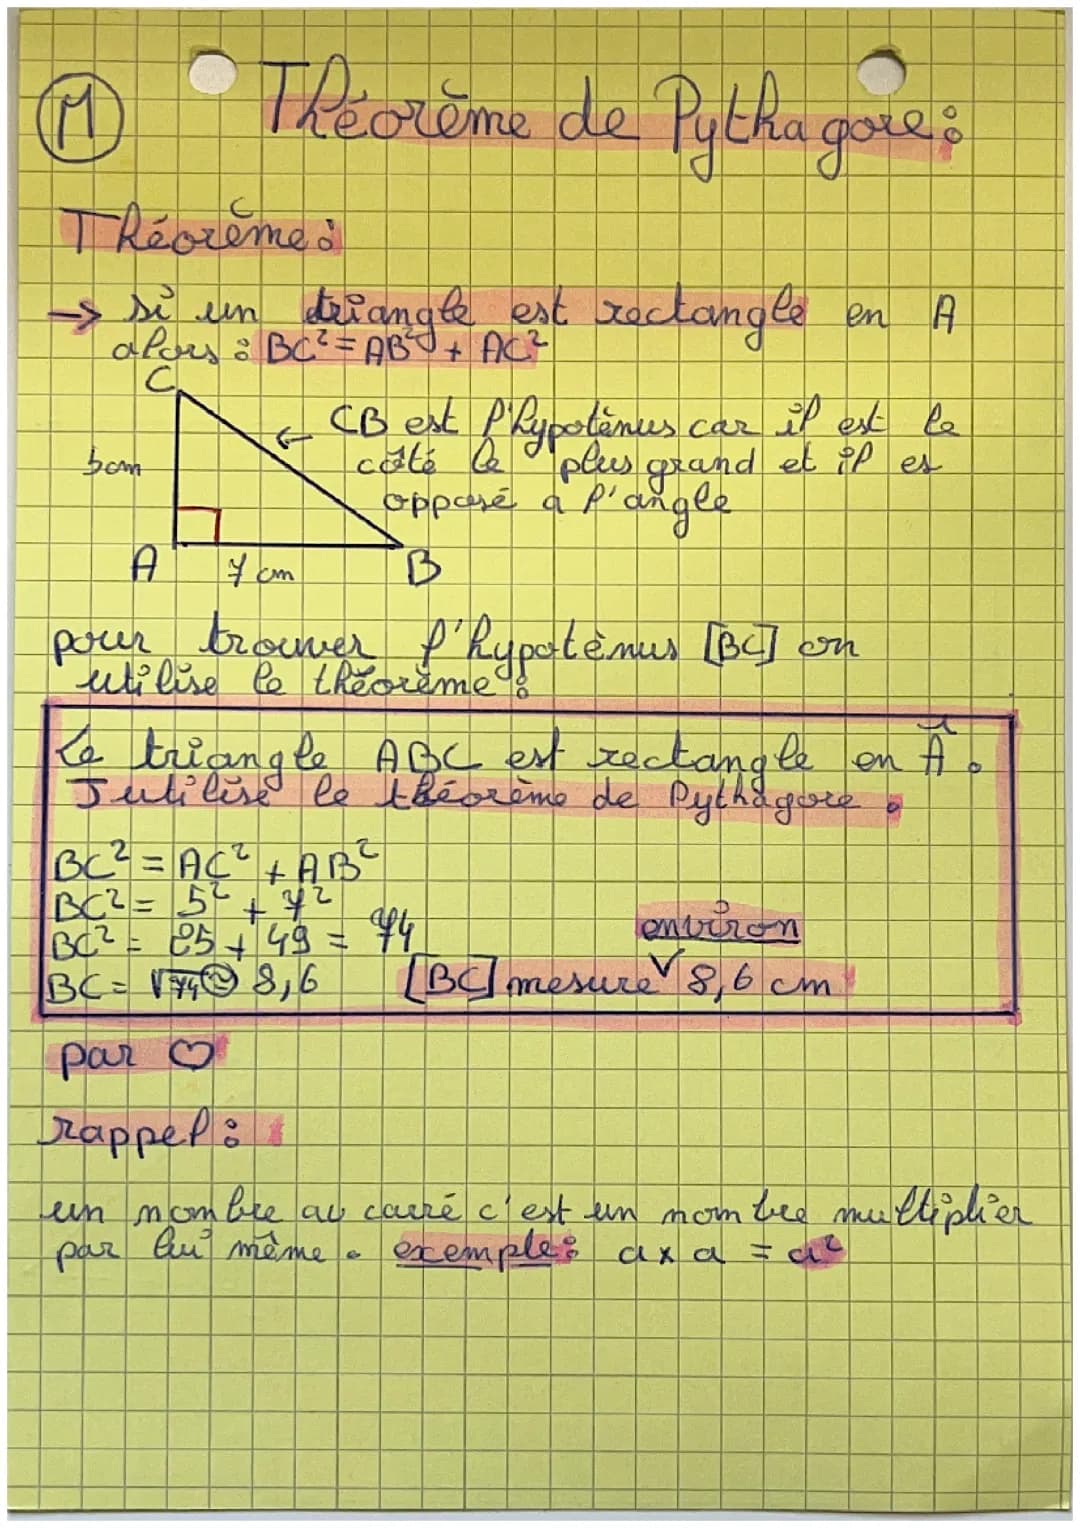 M
Théorème de Pythagore :
Théorème :
→ si un triangle est rectangle en A
alors : BC² = AB² + AC²
C
CB est l'hypoténus car il est le
5cm
côté le plus grand et il es
opposé a l'angle
A
7 cm
B
pour trouver l'hypoténus [BC] on
utilise le théorème :
Le triangle ABC est rectangle en Â.
J utilise le théorème de Pythagore.
BC² = AC² + AB²
BC² = 5² + 7²
BC² = 25 + 49 = 74
environ
BC = √74 ≈ 8,6 [BC] mesure √ 8,6 cm
par ♡
rappel :
un nombre au carré c'est un nombre multiplier
par lui même. exemple : a x a = a²